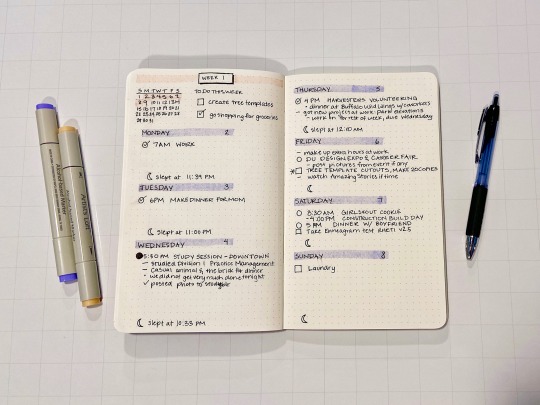 WEEK 1
S M T W T F S
1 2 3 4 5 6 7
8 9 10 11 12 13 14
15 16 17 18 19 20 21
22 23 24 25 26 27 28
29 30 31
TO DO THIS WEEK
create tree templates
go shopping for groceries
MONDAY 2
7AM WORK
slept at 11:39 PM
TUESDAY 3
6PM MAKE DINNER FOR MOM
slept at 11:00 PM
WEDNESDAY 4
5:30 PM STUDY SESSION - DOWNTOWN
- studied Division 1 Practice Management
- casual animal & the brick for dinner
- we did not get very much done tonight
✓ posted photo to
slept at 10:33 PM
THURSDAY 5
4 PM HARVESTERS VOLUNTEERING
- dinner at Buffalo Wild Wings w/ coworkers
- got new project at work - park elevations
- work in for rest of week, due Wednesday
slept at 12:10 AM
FRIDAY 6
- make up extra hours at work
DU DESIGN EXPO & CAREER FAIR
- post pictures from event if any
TREE TEMPLATE CUTOUTS, MAKE 20 COPIES
- watch Amazing Stories if time
SATURDAY 7
8:30AM GIRLSCOUT COOKIE
-4:00 PM CONSTRUCTION BUILD DAY
5 PM DINNER W/ BOYFRIEND
Take Enneagram test RHETI V2.5
SUNDAY 8
Laundry